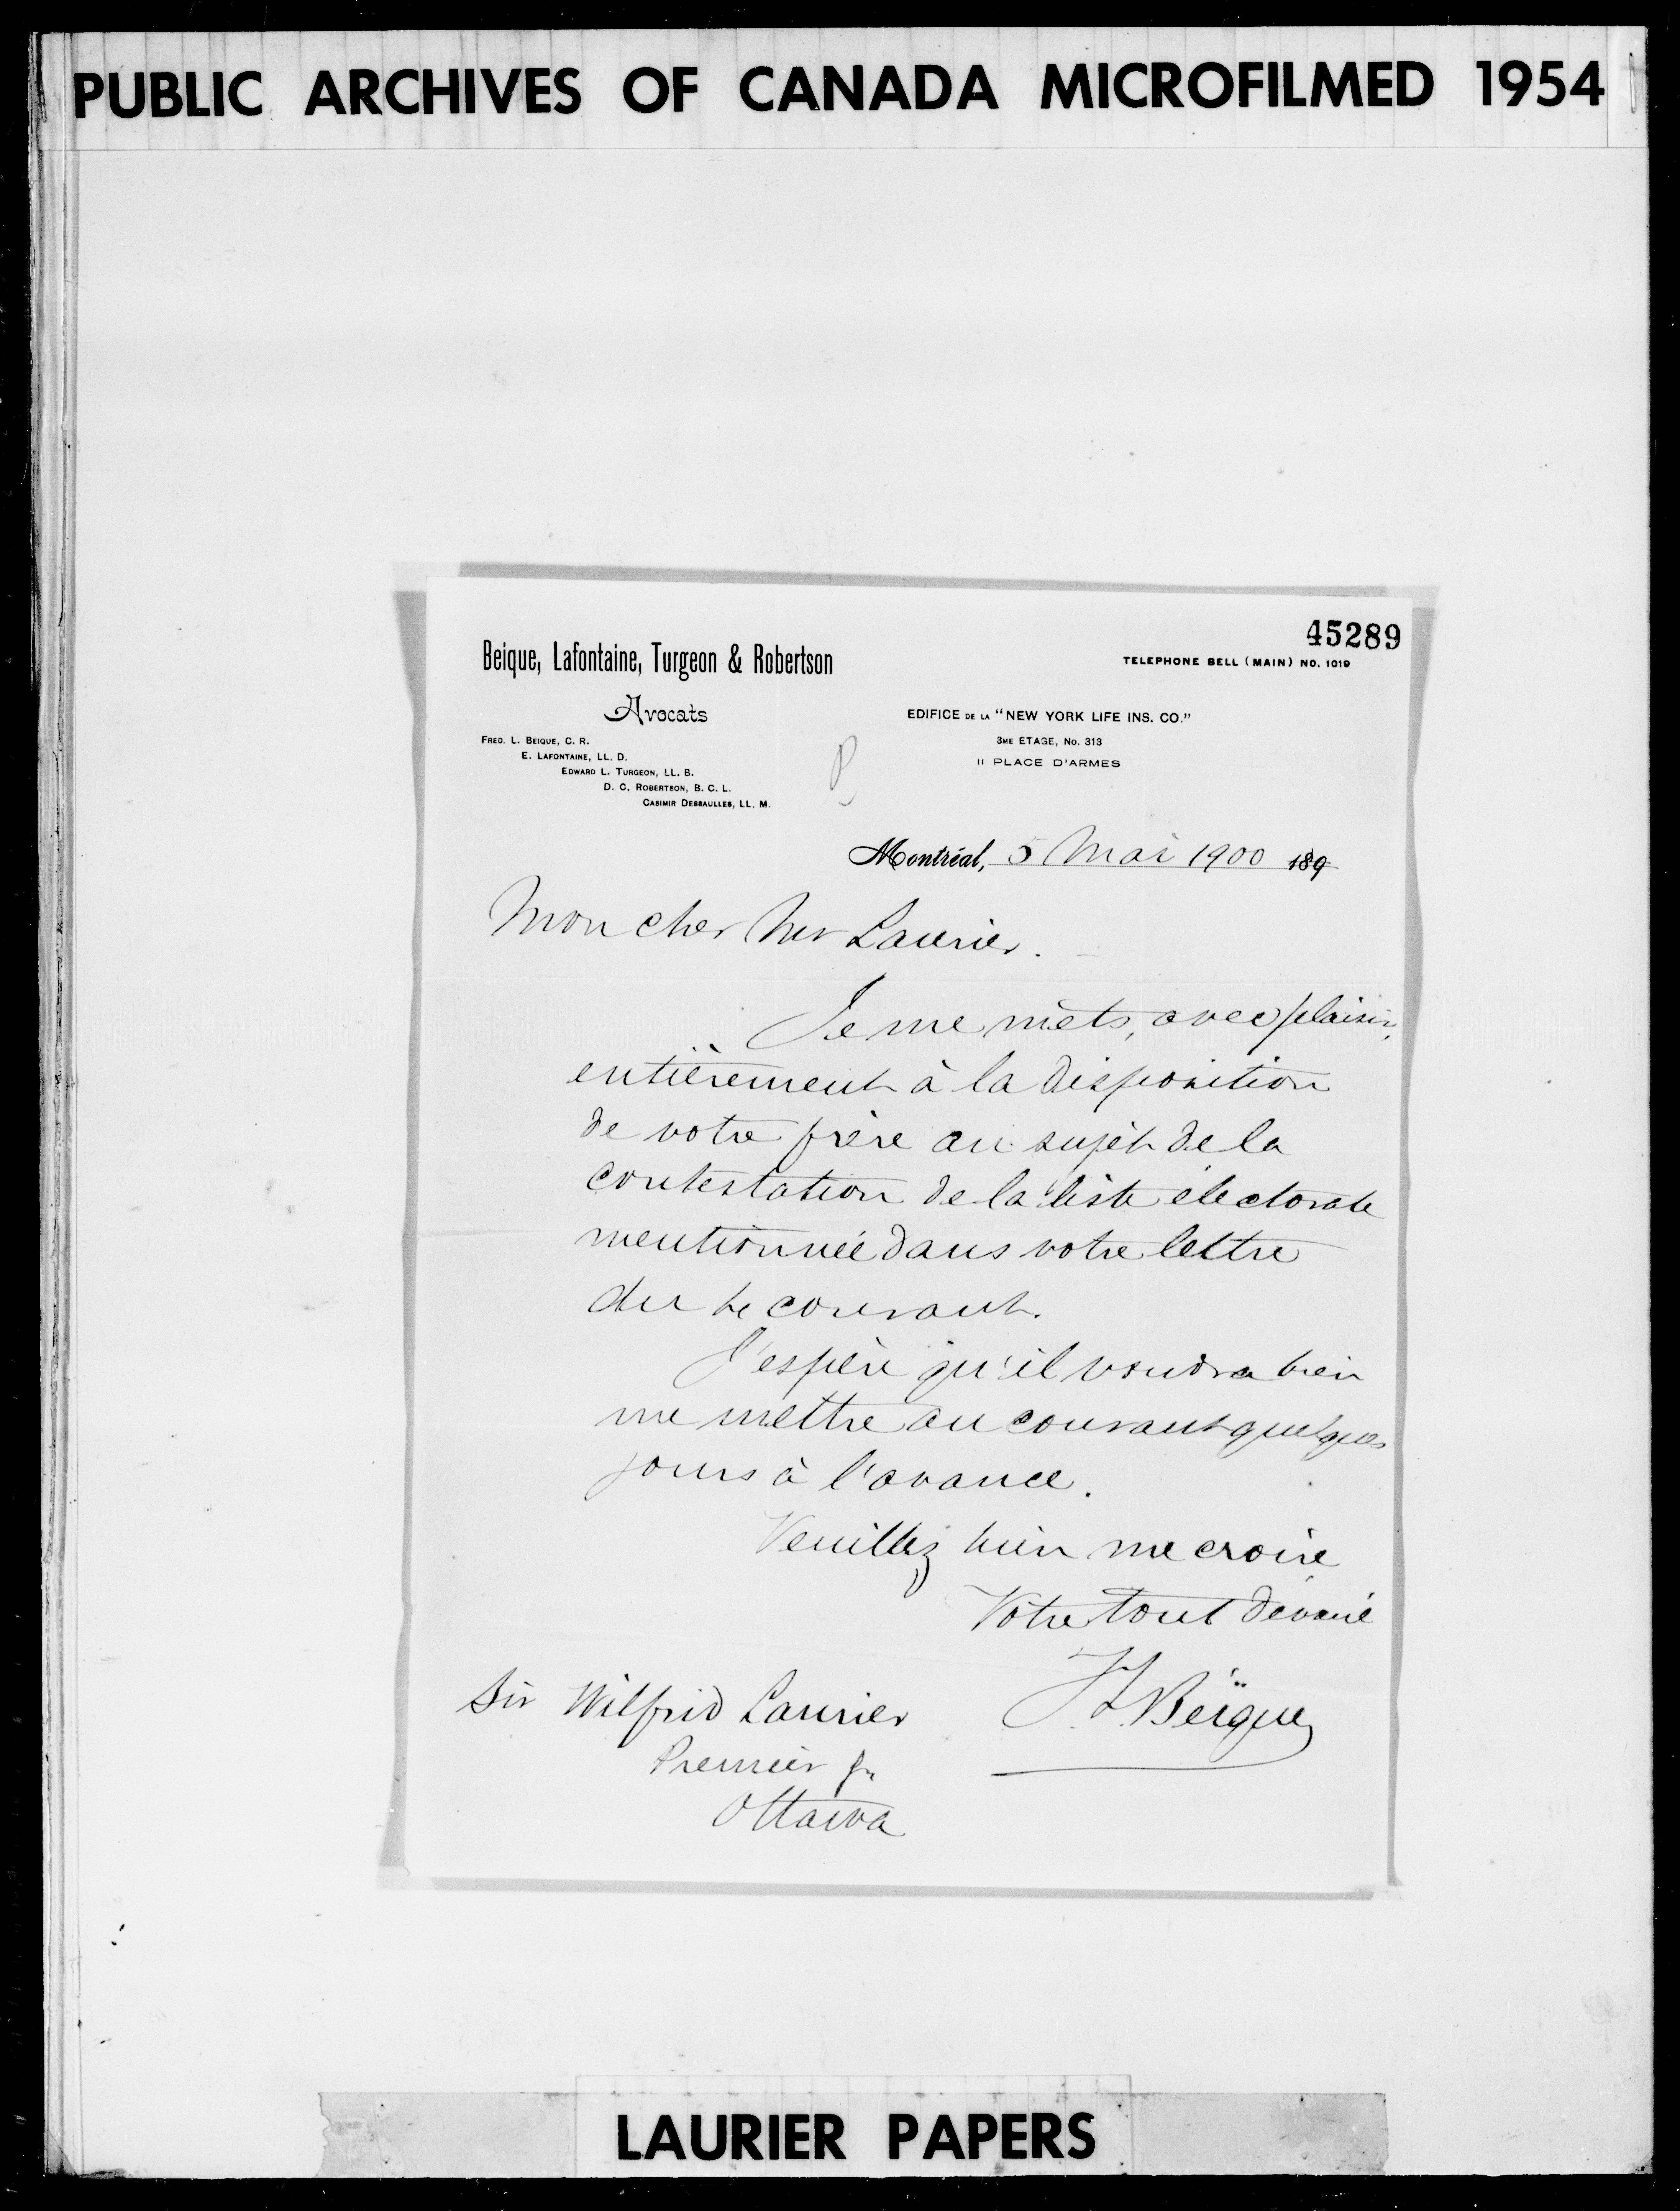 PUBLIC ARCHIVES OF CANADA MICROFILMED 1954
45289
Beique, Lafontaine, Turgeon & Robertson
TELEPHONE BELL (MAIN) NO. 1019
Avocats
EDIFICE DE LA "NEW YORK LIFE INS. CO."
FRED. L. BEIQUE, C. R.
3ME ETAGE, No. 313
E. LAFONTAINE, LL. D.
11 PLACE D'ARMES
EDWARD L. TURGEON, LL. B.
D. C. ROBERTSON, B. C. L.
CASIMIR DESSAULLES, LL. M.
P
Montréal, 5 Mai 1900 189
Mon cher Mr Laurier.
Je me mets, avec plaisir,
entièrement à la disposition
de votre frère au sujet de la
contestation de la liste électorale
mentionnée dans votre lettre
du courant.
J'espère qu'il voudra bien
me mettre au courant quelques
jours à l'avance.
Veuillez bien me croire
Votre tout dévoué
F. L. Béïque
Sir Wilfrid Laurier
Premier
Ottawa
LAURIER PAPERS